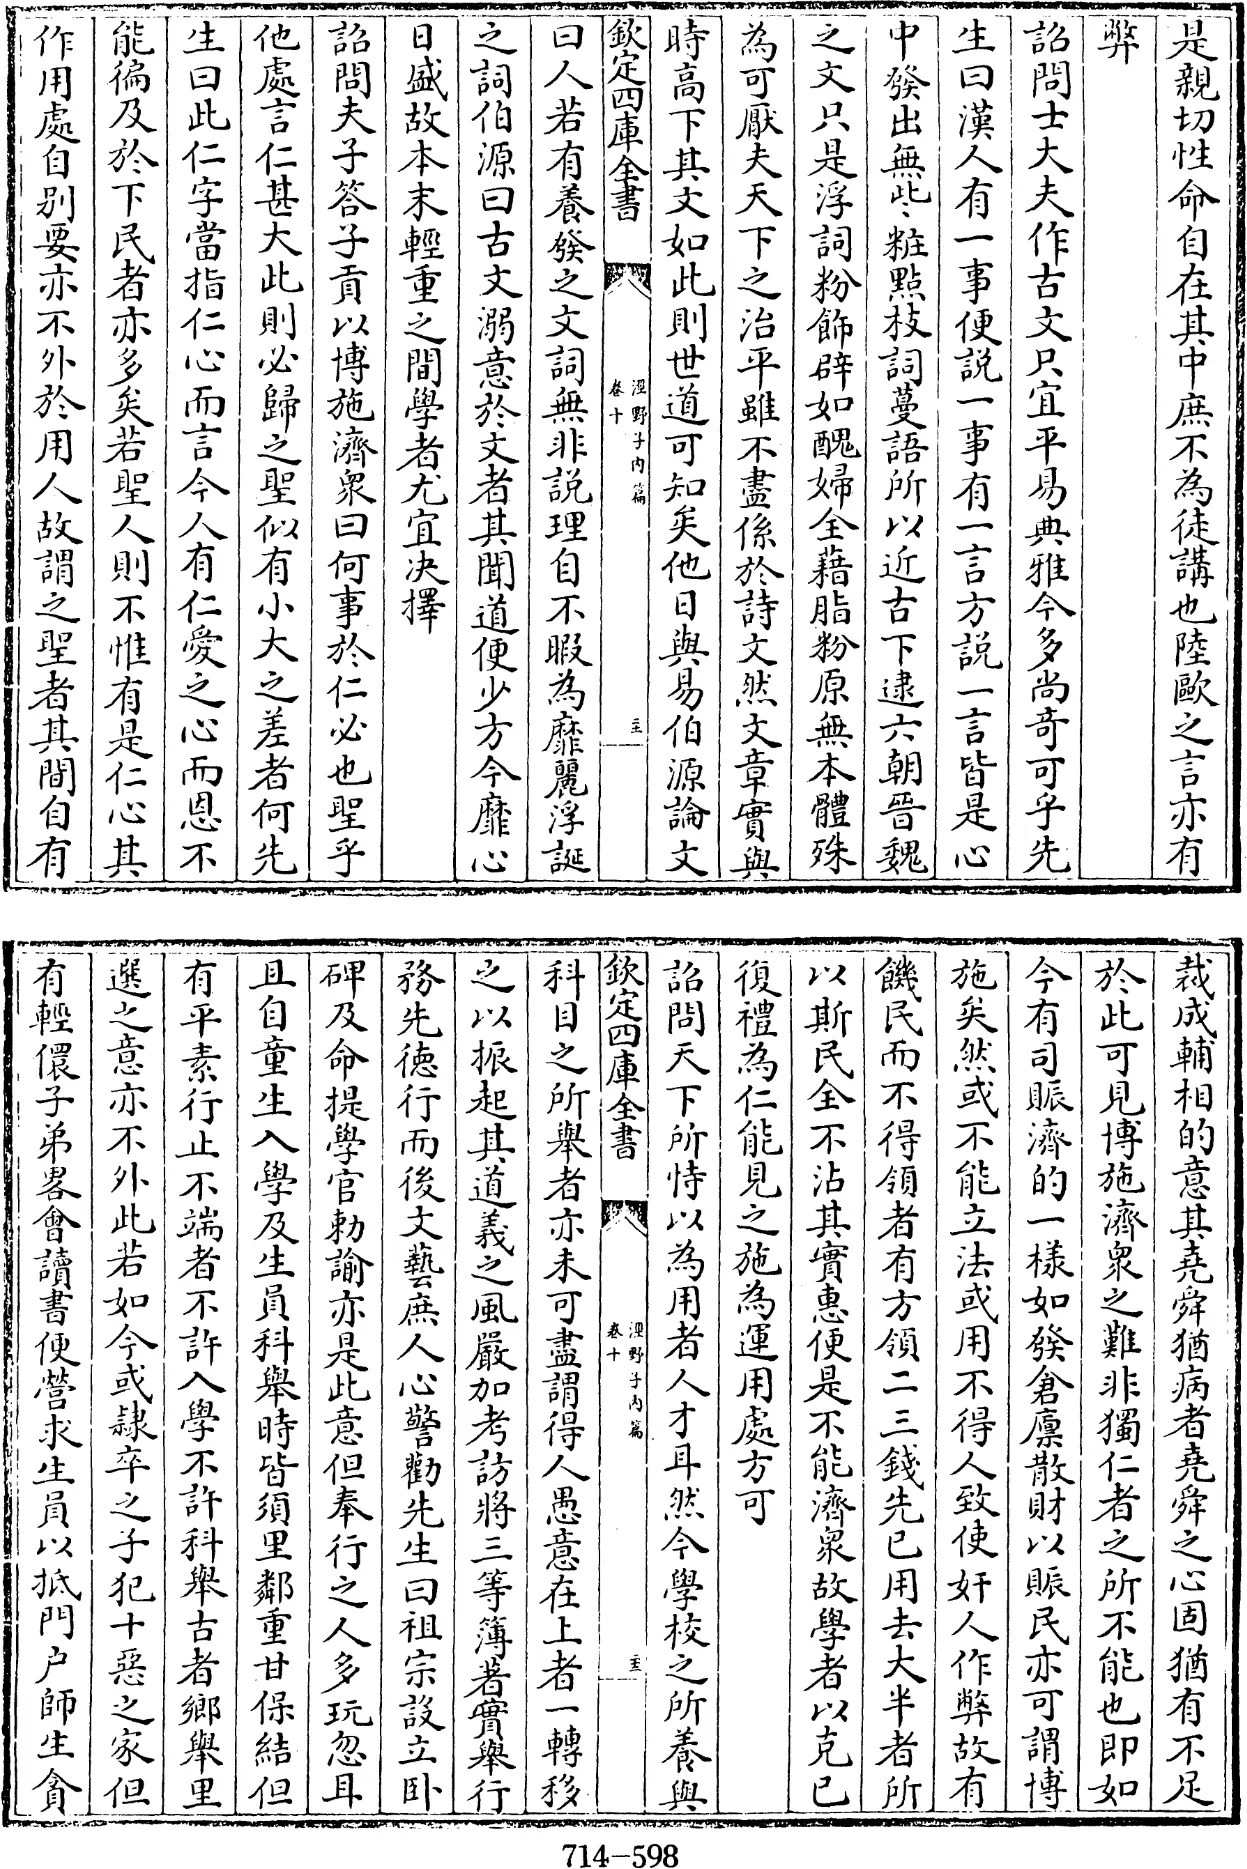 是親切性命自在其中庶不為徒講也陸歐之言亦有
弊
詔問士大夫作古文只宜平易典雅今多尚奇可乎先
生曰漢人有一事便説一事有一言方説一言皆是心
中發出無些粧點枝詞蔓語所以近古下逮六朝晉魏
之文只是浮詞粉飾辟如醜婦全藉脂粉原無本體殊
為可厭夫天下之治平雖不盡係於詩文然文章實與
時高下其文如此則世道可知矣他日與易伯源論文
欽定四庫全書
涇野子内篇
卷十
曰人若有養發之文詞無非説理自不暇為靡麗浮誕
之詞伯源曰古文溺意於文者其聞道便少方今靡心
日盛故本末輕重之間學者尤宜决擇
詔問夫子答子貢以博施濟衆曰何事於仁必也聖乎
他處言仁甚大此則必歸之聖似有小大之差者何先
生曰此仁字當指仁心而言今人有仁愛之心而恩不
能徧及於下民者亦多矣若聖人則不惟有是仁心其
作用處自别要亦不外於用人故謂之聖者其間自有
裁成輔相的意其堯舜猶病者堯舜之心固猶有不足
於此可見博施濟衆之難非獨仁者之所不能也即如
今有司賑濟的一樣如發倉廪散財以賑民亦可謂博
施矣然或不能立法或用不得人致使奸人作弊故有
饑民而不得領者有方領二三錢先已用去大半者所
以斯民全不沾其實惠便是不能濟衆故學者以克已
復禮為仁能見之施為運用處方可
詔問天下所恃以為用者人才耳然今學校之所養與
欽定四庫全書
涇野子内篇
卷十
科目之所舉者亦未可盡謂得人愚意在上者一轉移
之以振起其道義之風嚴加考訪將三等簿著實舉行
務先德行而後文藝庶人心警勸先生曰祖宗設立卧
碑及命提學官勅諭亦是此意但奉行之人多玩忽耳
且自童生入學及生員科舉時皆須里鄰重甘保結但
有平素行止不端者不許入學不許科舉古者鄉舉里
選之意亦不外此若如今或隷卒之子犯十惡之家但
有輕儇子弟畧會讀書便營求生員以抵門户師生貪
714-598